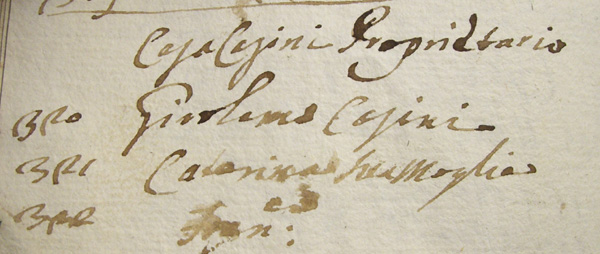 Casa Casini Proprietario
320 Girolamo Casini
321 Caterina sua Moglie
322 Fran:co